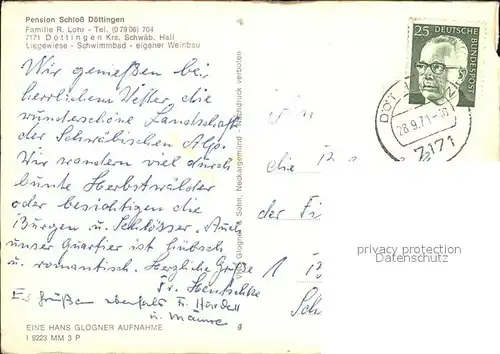 Pension Schloß Döttingen
Familie R. Lohr - Tel. (0 79 06) 704
7171 Döttingen Krs. Schwäb. Hall
Liegewiese - Schwimmbad - eigener Weinbau
Wir genießen bei
herrlichem Wetter die
wunderschöne Landschaft
der Schwäbischen Alb.
Wir wandern viel durch
bunte Herbstwälder
oder besichtigen die
Burgen u. Schlösser. Auch
unser Quartier ist hübsch
u. romantisch. Herzliche Grüße
Fr. Hentschke
Es grüßen ebenfalls
u. Männe
EINE HANS GLOGNER AUFNAHME
I 9223 MM 3 P
Glogner & Sohn, Neckargemünd - Nachdruck verboten
25
DEUTSCHE
BUNDESPOST
28.9.71
7171
die
der
privacy protection
Datenschutz